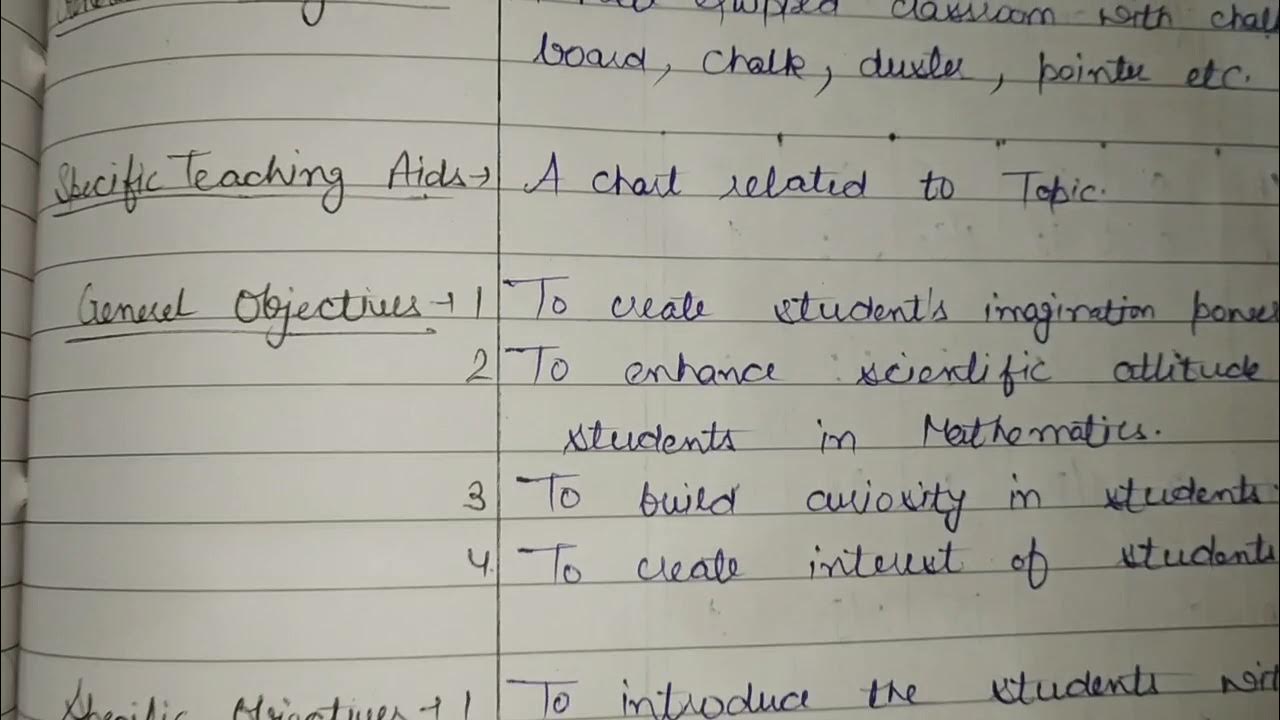 classroom with chal
board, chalk, duster, pointer etc.
Specific Teaching Aids → A chart related to Topic.
General Objectives → 1 To create student's imagination power
2 To enhance scientific attitude
students in Mathematics.
3 To build curiosity in students
4. To create interest of students
Specific Objectives → 1 To introduce the students wit